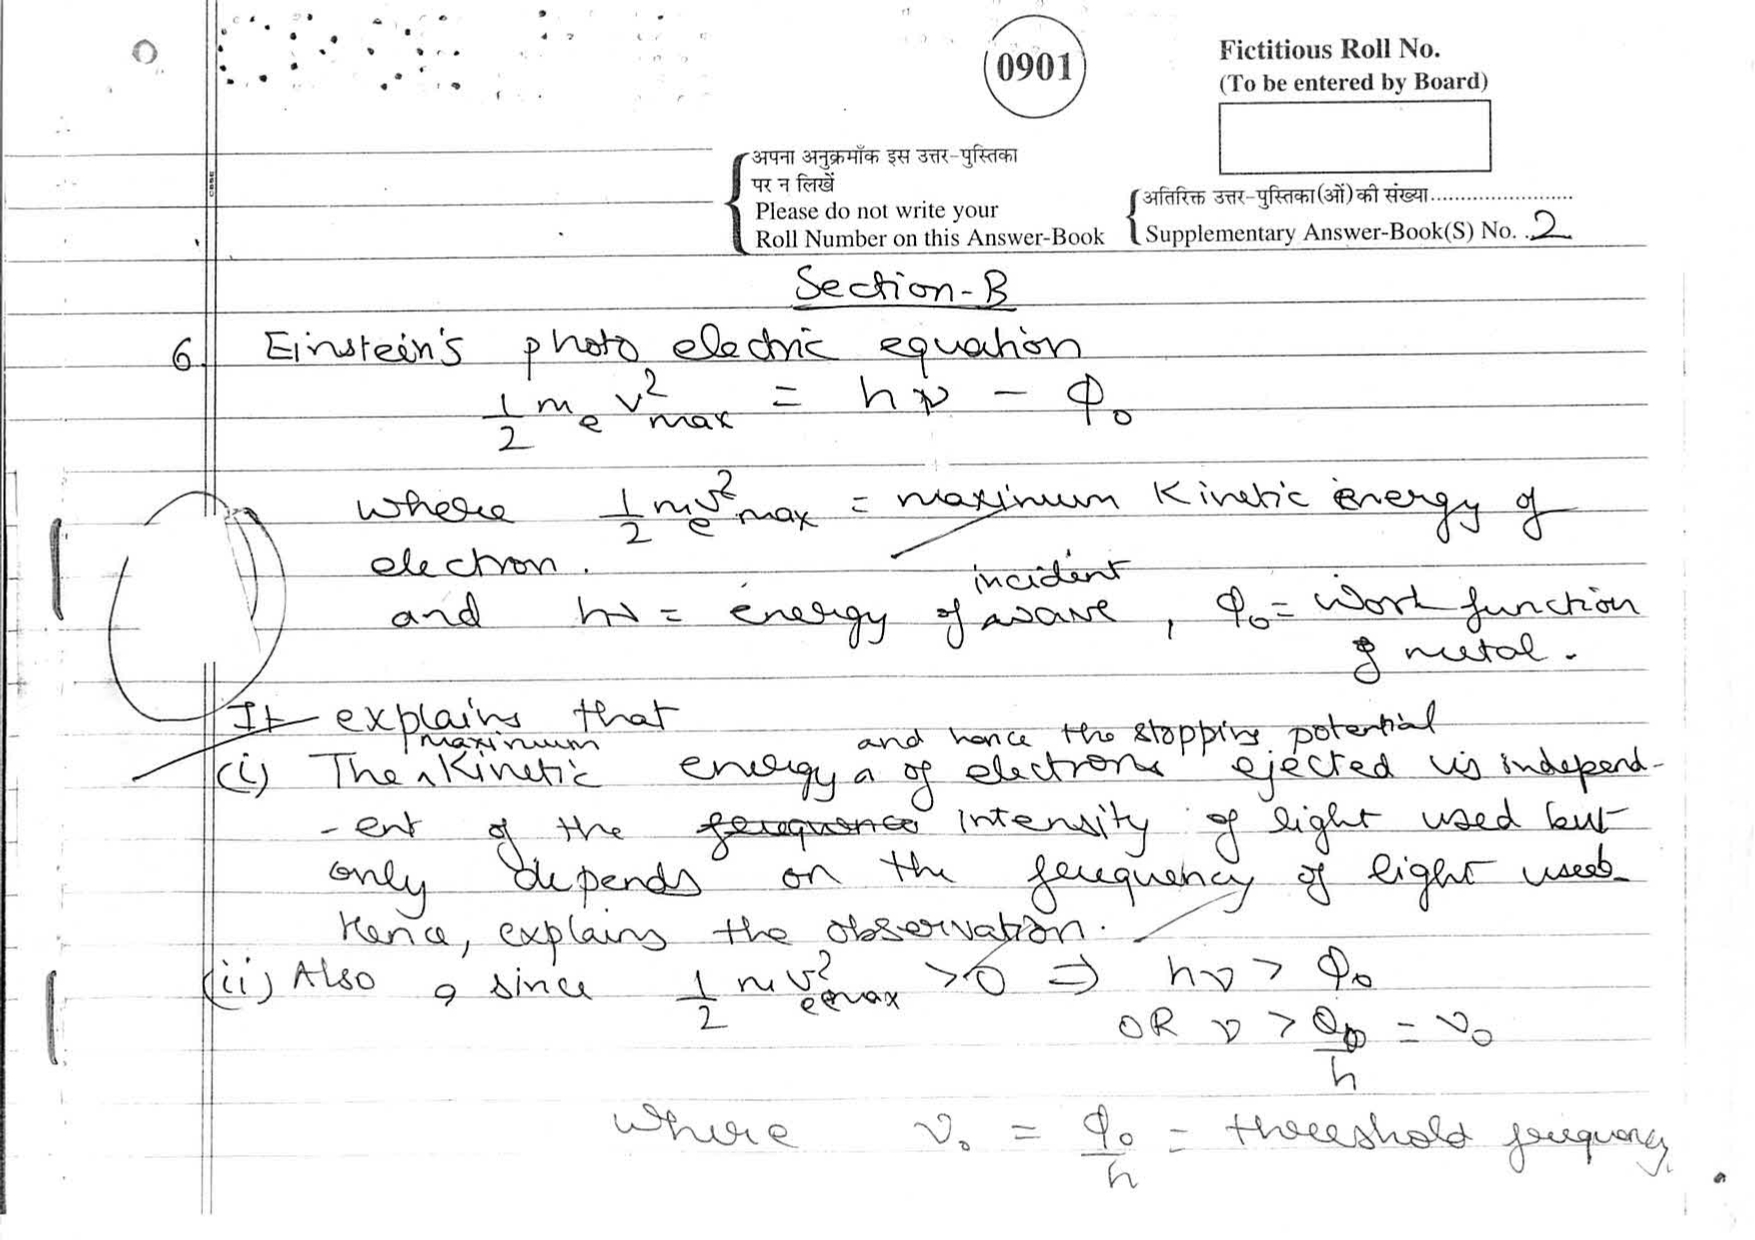 0901
Fictitious Roll No.
(To be entered by Board)
अपना अनुक्रमाँक इस उत्तर-पुस्तिका
पर न लिखें
Please do not write your
Roll Number on this Answer-Book
अतिरिक्त उत्तर-पुस्तिका(ओं) की संख्या........................
Supplementary Answer-Book(S) No. ..2
Section-B
6. Einstein's photo electric equation
1/2 m_e v²_max = hν - ϕ₀
where 1/2 m_e v²_max = maximum Kinetic energy of
electron.
and hν = energy of incident wave, ϕ₀ = work function
of metal.
It explains that
(i) The maximum Kinetic energy and hence the stopping potential of electrons ejected is independ-
-ent of the intensity of light used but
only depends on the frequency of light used
Hence, explains the observation.
(ii) Also, since 1/2 m_e v²_max > 0 ⇒ hν > ϕ₀
OR ν > ϕ₀/h = ν₀
where ν₀ = ϕ₀/h = threshold frequency